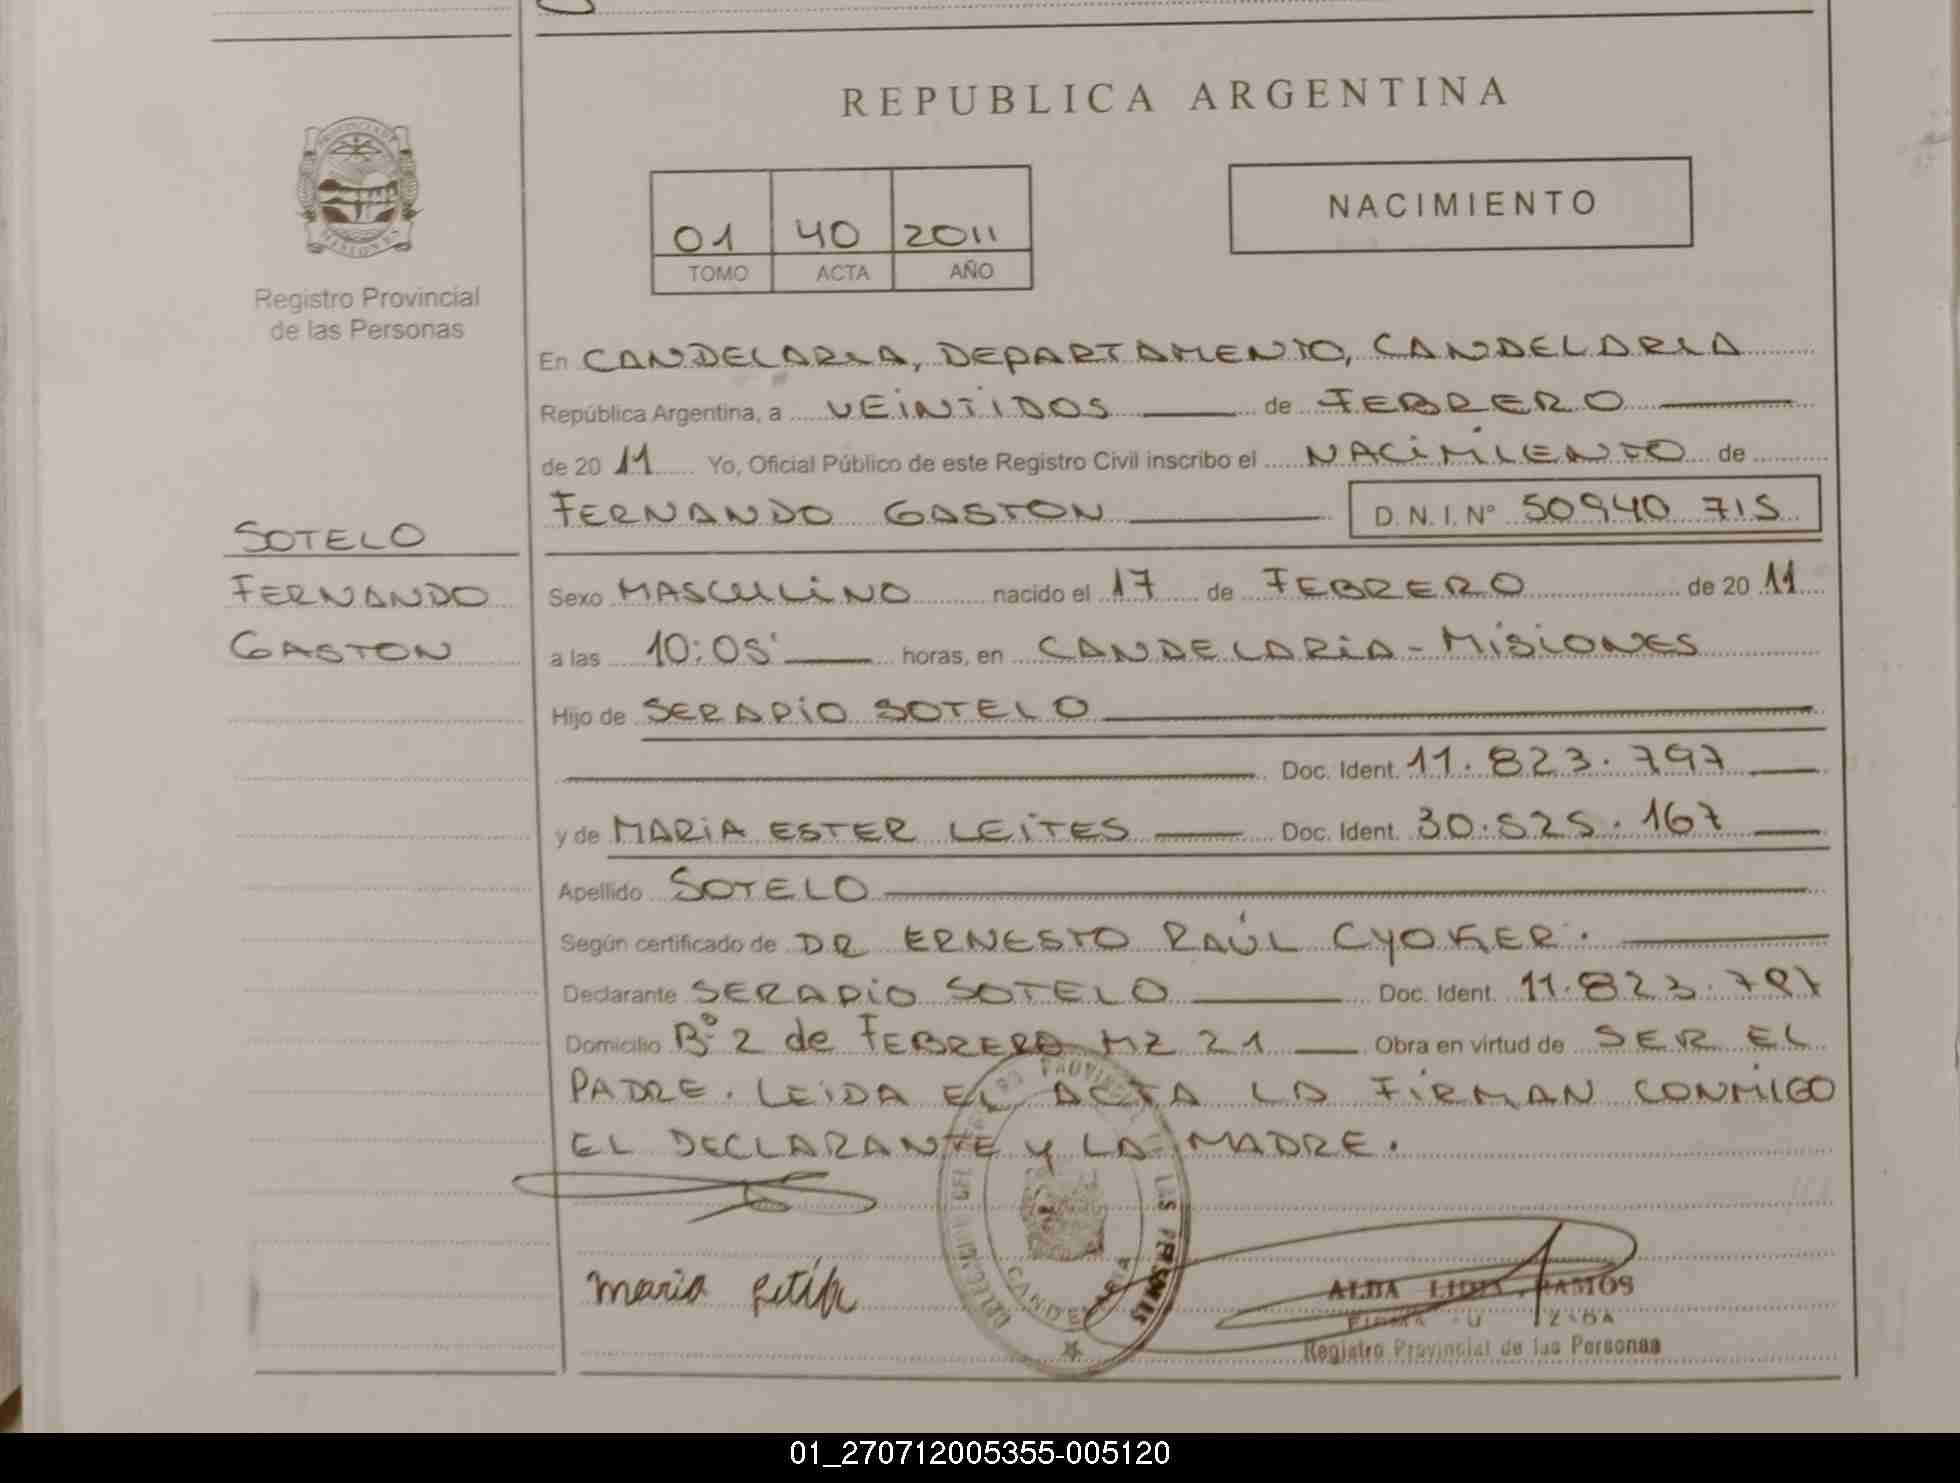 REPUBLICA ARGENTINA
PROVINCIA DE
MISIONES
Registro Provincial
de las Personas
01 40 2011
TOMO ACTA AÑO
NACIMIENTO
En CANDELARIA, DEPARTAMENTO, CANDELARIA
República Argentina, a VEINTIDOS de FEBRERO
de 20 11 Yo, Oficial Público de este Registro Civil inscribo el NACIMIENTO de
FERNANDO GASTON D.N.I. Nº 50940 715
SOTELO
FERNANDO
GASTON
Sexo MASCULINO nacido el 17 de FEBRERO de 20 11
a las 10:05' horas, en CANDELARIA - MISIONES
Hijo de SERAPIO SOTELO
Doc. Ident. 11.823.797
y de MARIA ESTER LEITES Doc. Ident. 30.525.167
Apellido SOTELO
Según certificado de DR ERNESTO RAÚL CYOKER.
Declarante SERAPIO SOTELO Doc. Ident. 11.823.797
Domicilio Bº 2 de FEBRERO MZ 21 Obra en virtud de SER EL
PADRE. LEIDA EL ACTA LA FIRMAN CONMIGO
EL DECLARANTE Y LA MADRE.
maria
ALBA LIDIA RAMOS
Registro Provincial de las Personas
CANDELARIA
01_270712005355-005120